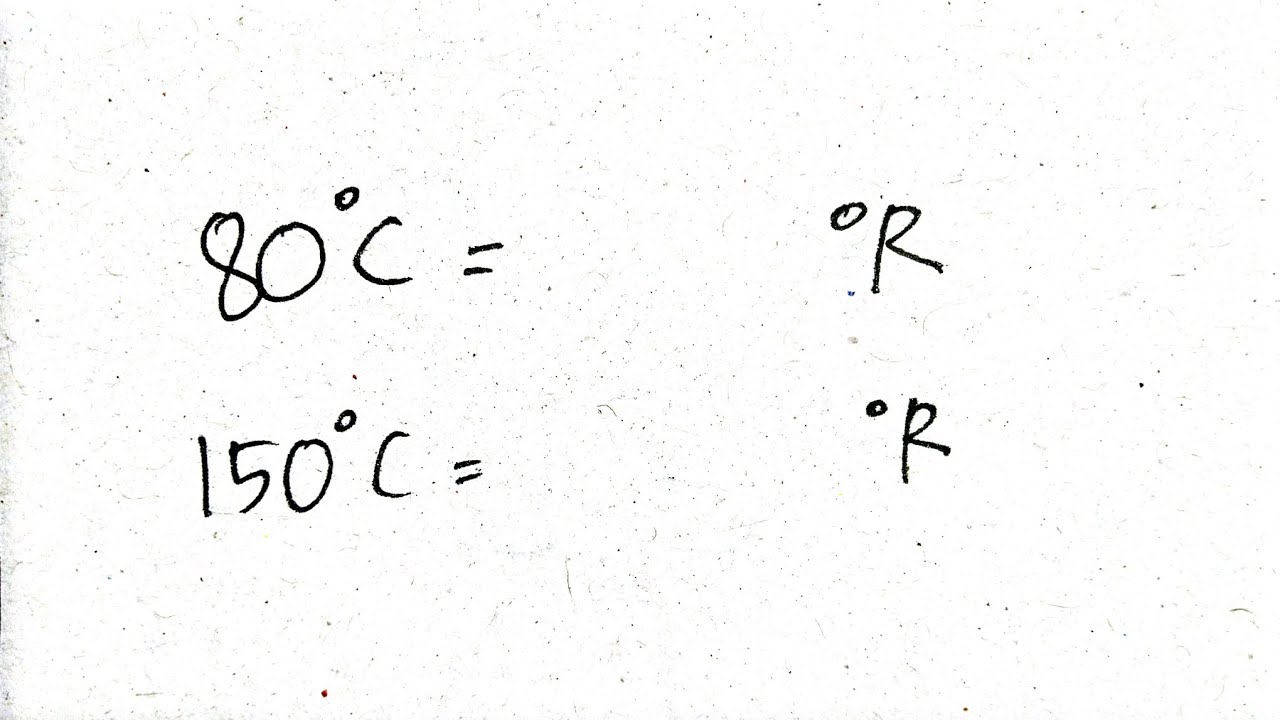 80°C = °R
150°C = °R